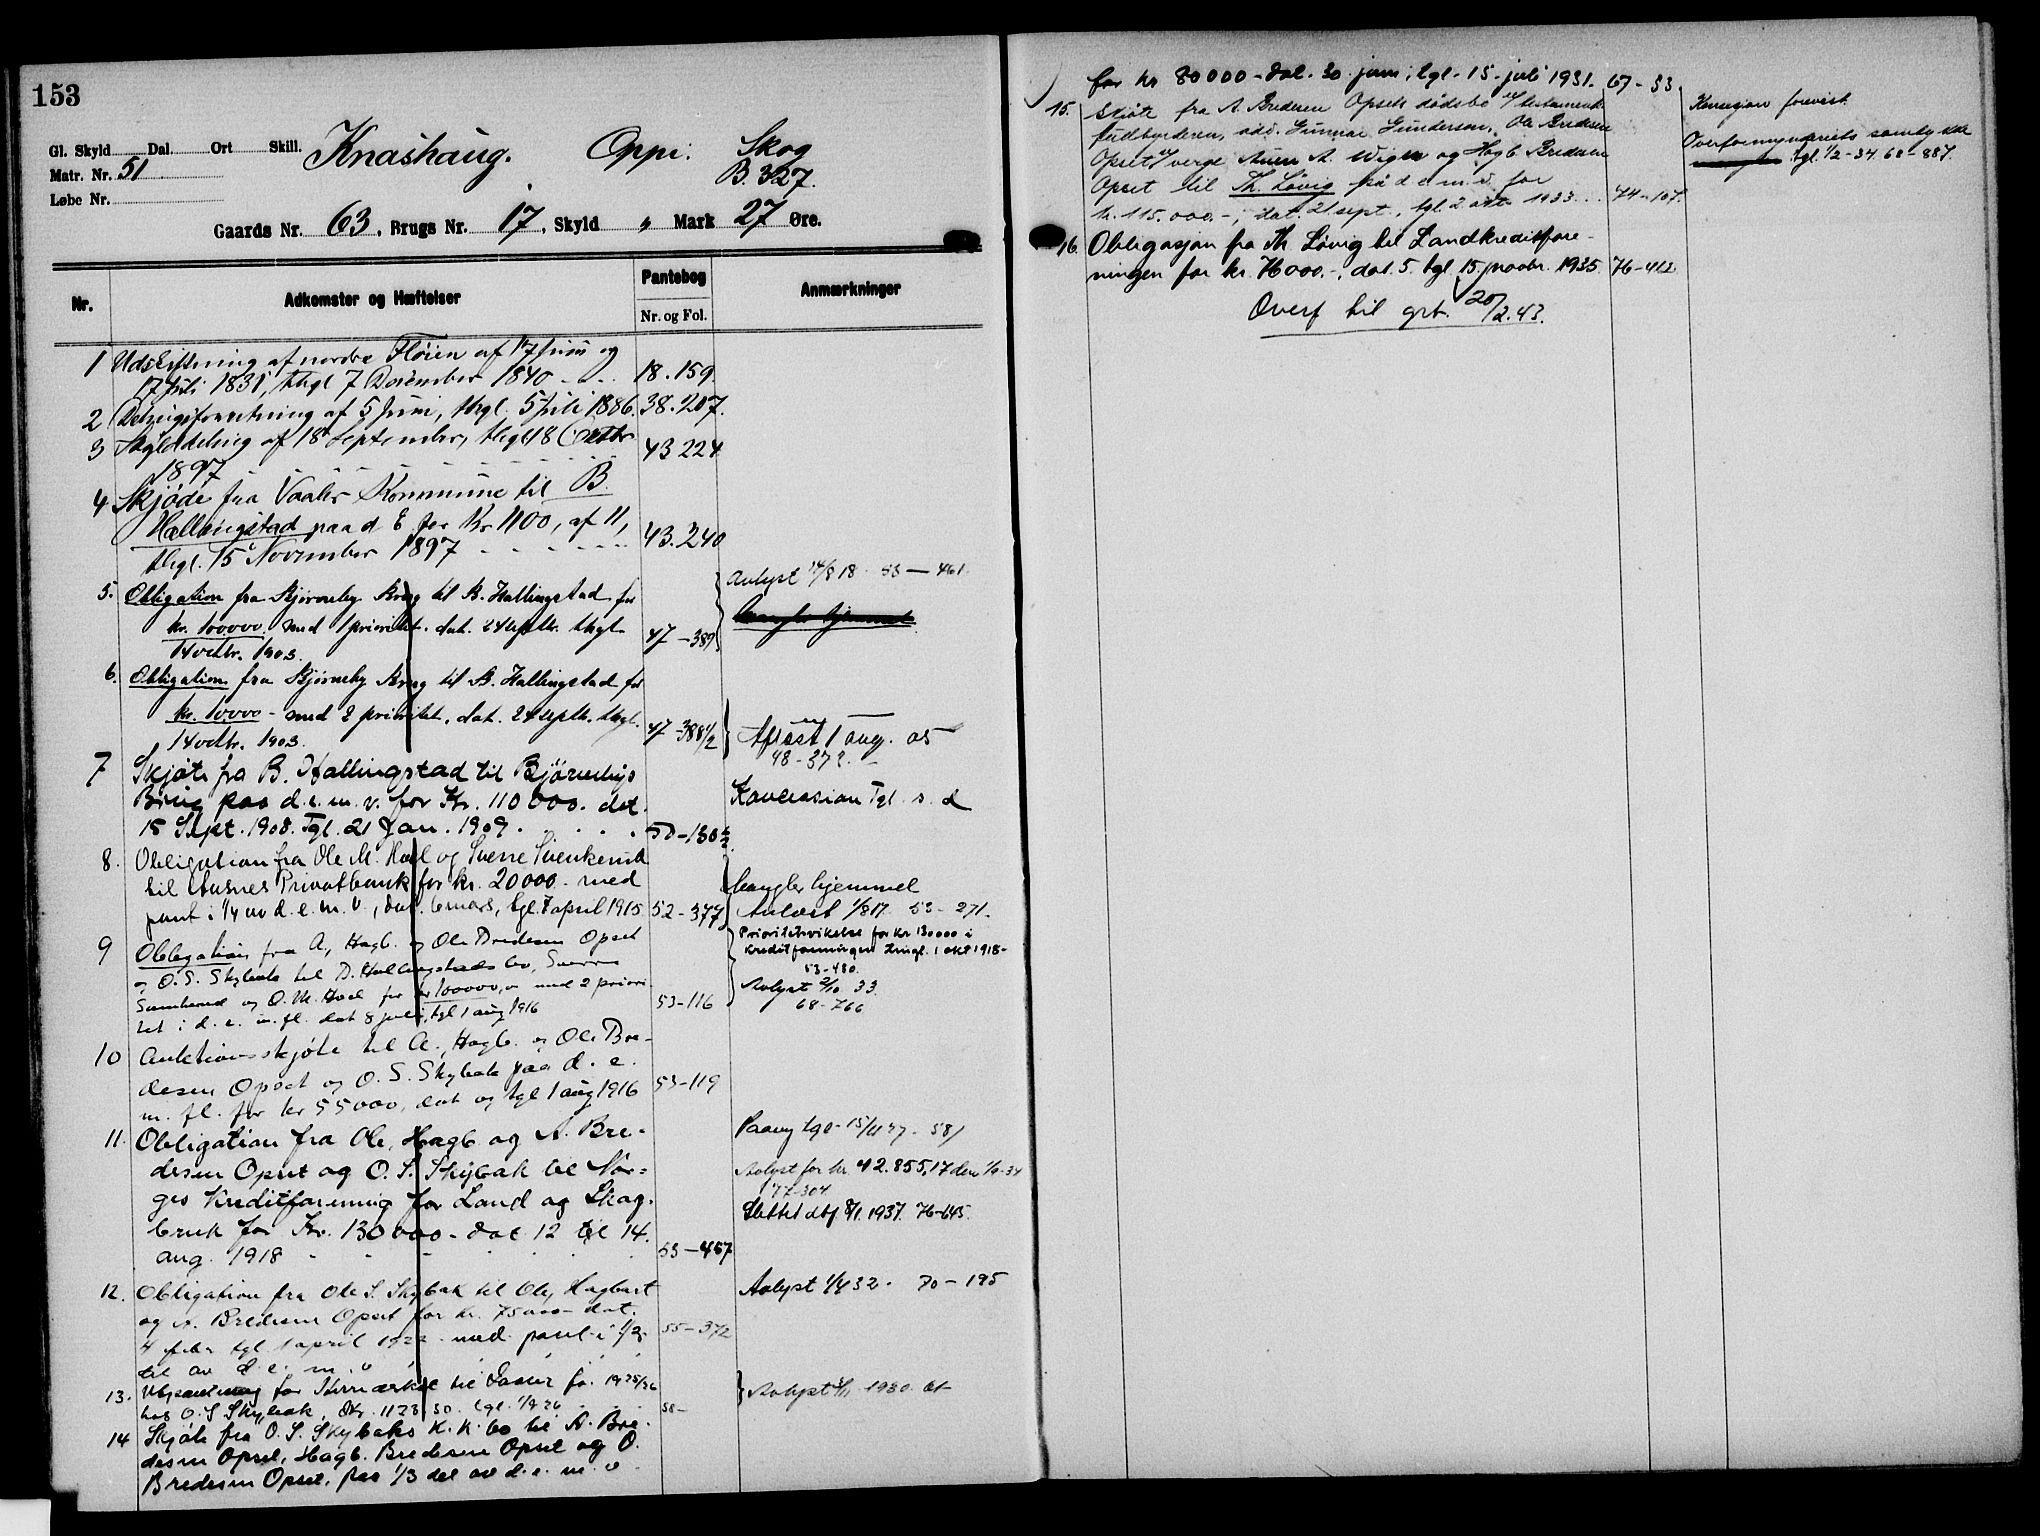 153
Gl. Skyld Dal. Ort Skill. Knashaug. Oppi. Skog
Matr. Nr. 51 B. 327.
Løbe Nr.
Gaards Nr. 63, Brugs Nr. 17, Skyld " Mark 27 Øre.
Nr. Adkomster og Hæftelser Pantebog Nr. og Fol. Anmærkninger
1 Udskiftning af nordre Fløien af 17 Juni og
17 Juli 1831, thgl 7 December 1840 - - - 18.159
2 Delingsforretning af 5 Juni, thgl. 5 Juli 1886. 38.207.
3 Skylddeling af 18 September, thgl 18 Octbr 43 224
1897
4 Skjøde fra Vaaler Kommune til B.
Hallingstad paa d E for Kr 1100, af 11, 43.240
thgl. 15 November 1897 - - - - - -
5. Obligation fra Bjørneby Brug til B. Hallingstad for
kr. 100000 med 1 prioritet. dat. 24 septbr. thgl. 47-389
14 octbr. 1903.
Avlyst 14/8 18 53-461.
6. Obligation fra Bjørneby Brug til B. Hallingstad for
kr. 10000 - med 2 prioritet, dat. 24 septb. thgl. 47-388 1/2
14 octbr. 1903.
Aflæst 1 aug. 05
48-372. -
7 Skjøte fra B. Hallingstad til Bjørnebys
Brug paa d. e. m. v. for Kr. 110 000. dat.
15 Sept. 1908. Tgl. 21 Jan. 1909. . . . . 50-130 1/2
Koncession Tgl. s. d
8. Obligation fra Ole M. Hoel og Sverre Svenkerud
til Busnes Privatbank for kr. 20000.- med
pant i 1/4 av d. e. m. v., dat. 6 mars, tgl. 7 april 1915 52-377
Mangler hjemmel
Avlæst 1/8 17. 53-271.
9 Obligation fra A., Hagb. og Ole Bredesen Opset
og O. S. Skybak til B. Hallingstads bo, Sverre
Svenkerud og O. M. Hoel for kr 100000,00 med 2 priori-
tet i d. e. m. fl. dat 8 juli, tgl 1 aug 1916 53-116
Prioritetsvikelse for kr 130000 i
Kreditforeningen tingl. 1 okt 1918-
53-480.
Avlyst 2/10 33.
68-766
10 Auktionsskjøte til A., Hagb. og Ole Bre-
desen Opset og O. S. Skybak paa d. e.
m. fl. for kr 55000, dat og tgl 1 aug 1916 53-119
11. Obligation fra Ole, Hagb. og A. Bre-
desen Opset og O. S. Skybak til Nor-
ges Kreditforening for Land og Skog-
bruk for Kr. 130 000 - dat 12 tgl 14.
aug. 1918 - - - 53-457
Avlyst for kr. 42.855,17 den 1/6-34
77-304
Slettet dbf 8/1. 1937. 76-645.
12. Obligation fra Ole S. Skybak til Ole, Hagbart
og A. Bredesen Opset for kr. 75000 - dat.
4 febr tgl 1 april 1922 med pant i 1/3 55-372
del av d. e. m. v
Avlyst 1/4 32. 70-195
13. Utpantning for Skatter til Vaaler for 1925/26
hos O. S Skybak, Kr. 1123 50. tgl. 1/9 26 58-
Avlyst 3/11 1930. Bl
14 Skjøte fra O. S. Skybaks K. K. bo til A. Bre-
desen Opset, Hagb. Bredesen Opset og O.
Bredesen Opset, paa 1/3 del av d. e. m. v
for kr 80000 - dat. 30. juni, tgl. 15. juli 1931. 67-53.
15. Skjøte fra A. Bredesen Opsets dødsbo v/ testament-
fuldbyrderen, adv. Gunnar Gundersen, Ole Bredesen
Opset v/ verge Auen A. Wigen og Hagb. Bredesen
Opset til Th. Løvig på d e m. v. for
kr. 115.000.-, dat. 21 sept., tgl 2 oktr 1933... 74-107.
Konsesjon forevist.
Overformynderiets samtykke
tgl. 1/2-34. 68-887.
16. Obligasjon fra Th. Løvig til Landkreditfore-
ningen for kr. 76000.-, dat. 5. tgl 15. novbr. 1935. 76-412
Overf til grb. 20/2.43.